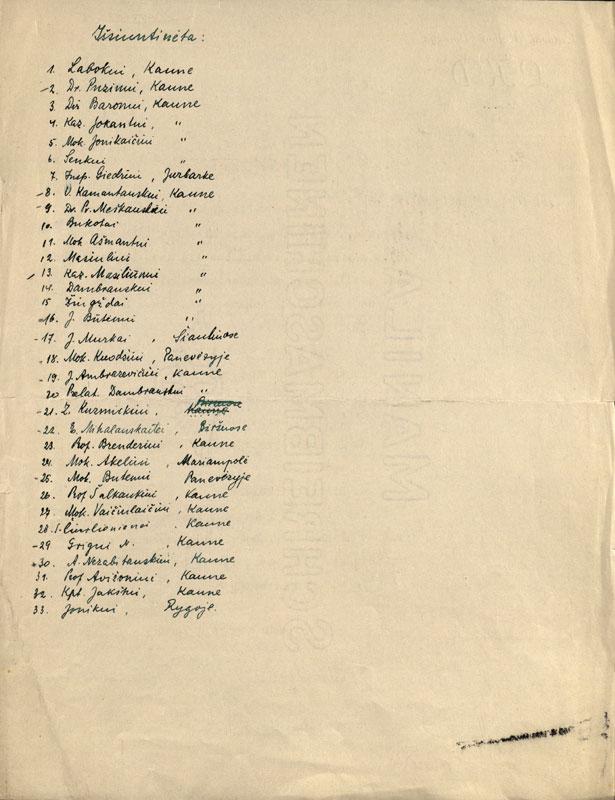 Išsiuntinėta:
1. Labokui, Kaune
-2. Dr. Puzinui, Kaune
3. Dir Baronui, Kaune
4. Kaz. Jokantui, "
5. Mok. Jonikaičiui "
6. Senkui "
7. Insp. Giedriui, Jurbarke
-8. V. Kamantauskui, Kaune
-9. Dr. Pr. Meškauskui "
10. Bukotai "
11. Mok Ašmantui "
12. Masiuliui "
13. Kaz. Masiliūnui "
14. Dambrauskui "
15 Žingždai "
-16. J. Būtėnui "
-17. J. Murkai, Šiauliuose
-18. Mok. Kuodžiui, Panevėžyje
-19. J. Ambrazevičiui, Kaune
20 Prelat. Dambrauskui "
-21. Z. Kuzmickiui, Kaune
-22. E. Mikalauskaitei, Biržuose
23. Prof. Brenderiui, Kaune
24. Mok. Akeliui, Mariampolė
-25. Mok. Butėnui Panevėžyje
26. Prof Šalkauskiui, Kaune
27. Mok. Vaičiulaičiui, Kaune
28. Čiurlionienei, Kaune
-29 Grigui N., Kaune
-30. A. Nezabitauskiui, Kaune
31. Prof Avižoniui, Kaune
32. Kpt. Jakštui, Kaune
33. Jonikui, Rygoje.